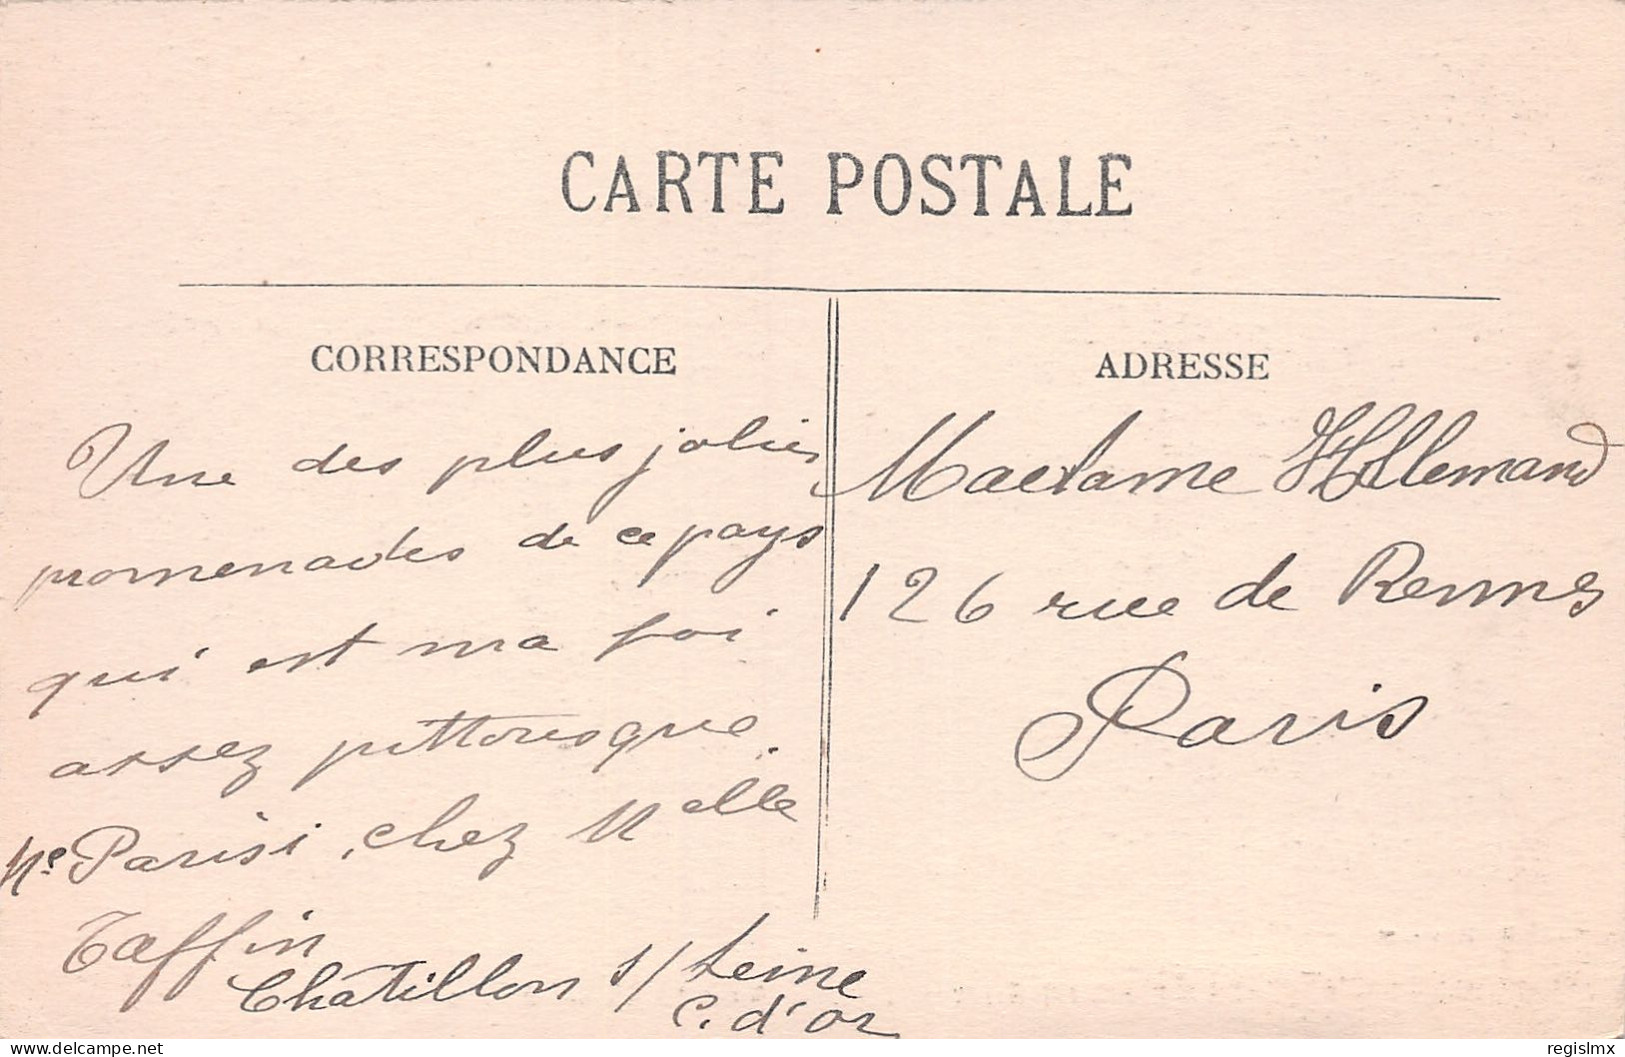 CARTE POSTALE
CORRESPONDANCE
Une des plus jolies
promenades de ce pays
qui est ma foi
assez pittoresque.
Me Parisi, chez Melle
Taffin
Châtillon s/ Seine
C. d'or
ADRESSE
Madame
126 rue de Rennes
Paris
delcampe.net
regislmx